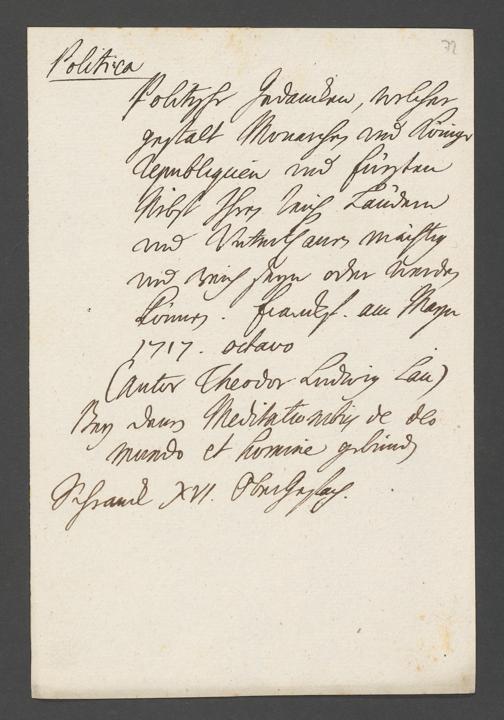 72
Politica
Politische Gedancken, welcher
gestalt Monarchen und Könige
Republiquen und Fürsten
Nebst Ihren Reich Ländern
und Unterthanen mächtig
und reich seyn oder werden
können. Franckf. am Mayn
1717. octavo
(autor Theodor Ludwig Lau)
Bey denen Meditationibus de deo
mundo et homine gebunden
Schranck XVI. Oberstes Fach.